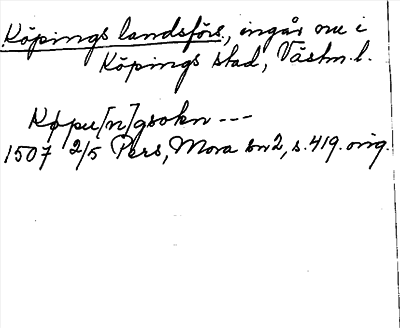 Köpings landsförs., ingår nu i
Köpings stad, Västm.l.
Køpu[n]gsokn ---
1507 2/5 Pers, Mora sn 2, s. 419. orig.